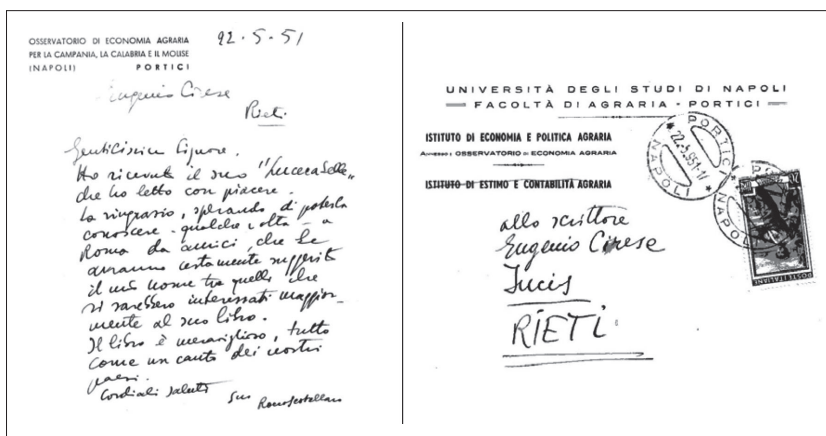 OSSERVATORIO DI ECONOMIA AGRARIA
PER LA CAMPANIA, LA CALABRIA E IL MOLISE
(NAPOLI) PORTICI
22.5.51
Eugenio Cirese
Rieti
Gentilissimo Signore,
Ho ricevuto il suo "Lucecabelle"
che ho letto con piacere.
La ringrazio, sperando di poterla
conoscere - qualche volta - a
Roma da amici, che Le
avranno certamente suggerito
il mio nome tra quelli che
si sarebbero interessati maggior-
mente al suo libro.
Il libro è meraviglioso, tutto
come un canto dei nostri
paesi.
Cordiali saluti
Suo Rocco Scotellaro
UNIVERSITÀ DEGLI STUDI DI NAPOLI
FACOLTÀ DI AGRARIA - PORTICI
ISTITUTO DI ECONOMIA E POLITICA AGRARIA
ANNESSO: OSSERVATORIO DI ECONOMIA AGRARIA
ISTITUTO DI ESTIMO E CONTABILITÀ AGRARIA
PORTICI
22.5.951-14
NAPOLI
POSTE ITALIANE
allo scrittore
Eugenio Cirese
RIETI